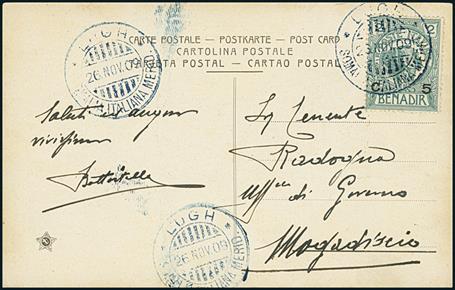 CARTE POSTALE - POSTKARTE - POST CARD
CARTOLINA POSTALE
TARJETA POSTAL - CARTAO POSTAL
LUGH
26 NOV. 09
ITALIANA MERID.
LUGH
NOV 09
ITALIANA MERID.
2
5
BENADIR
Saluti ed auguri
vivissimi
Tenente
Radogna
Uff. di Governo
Mogadiscio
LUGH
26 NOV. 09
ITALIANA MERID.